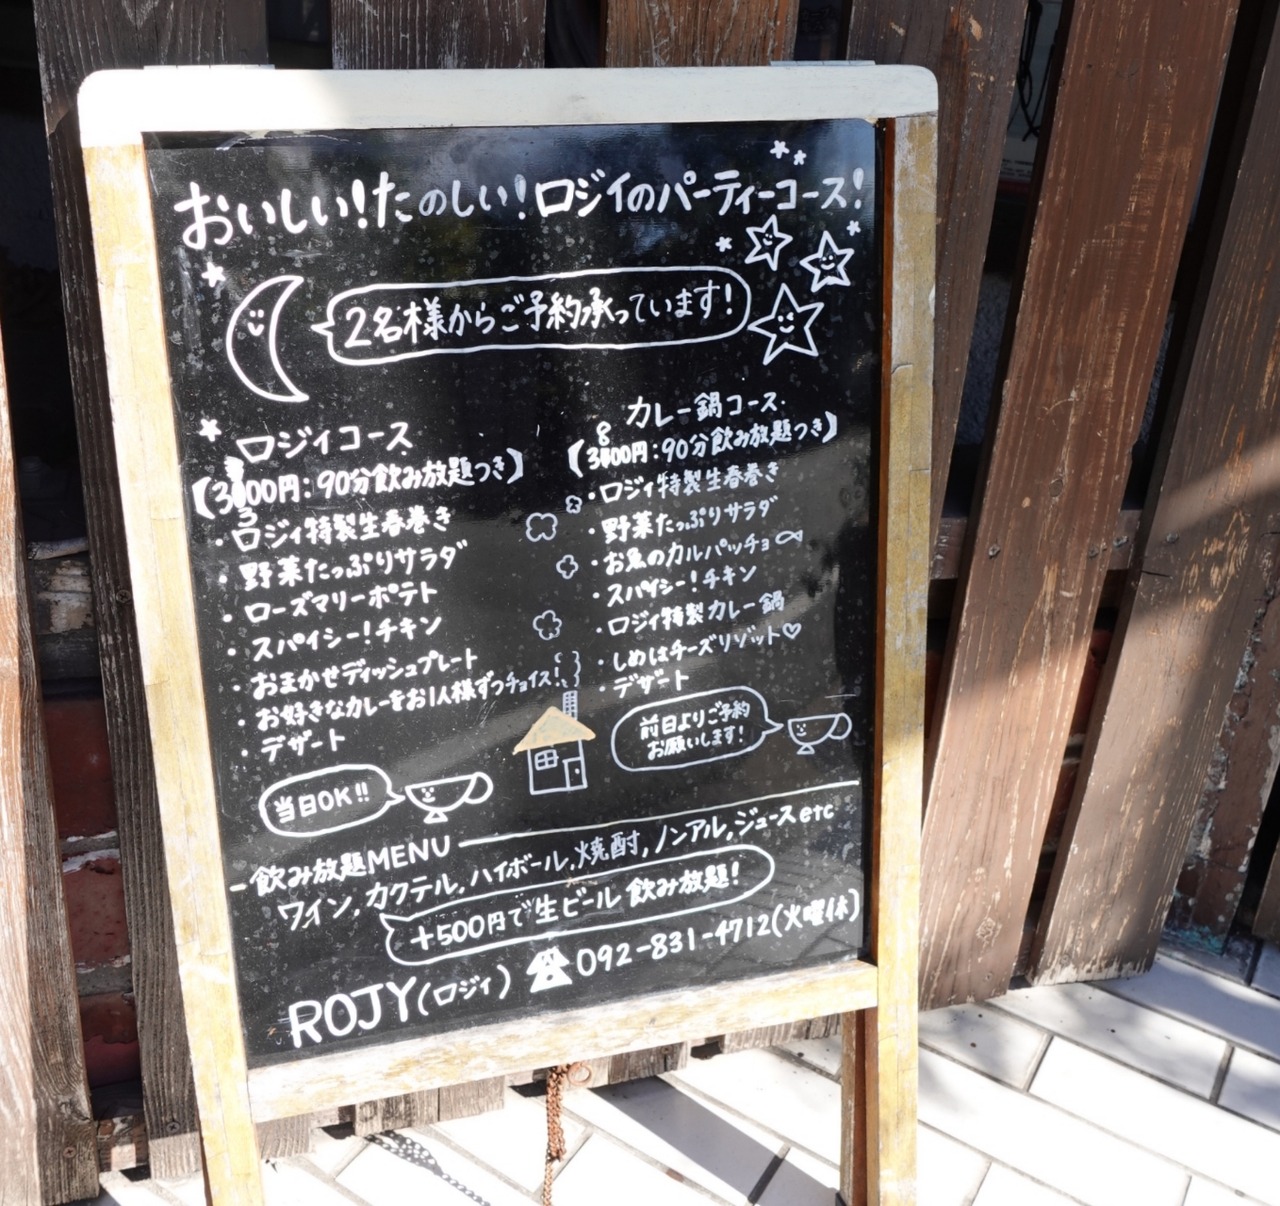 おいしい!たのしい!ロジィのパーティーコース!
2名様からご予約承っています!
ロジィコース
【3300円:90分飲み放題つき】
・ロジィ特製生春巻き
・野菜たっぷりサラダ
・ローズマリーポテト
・スパイシー!チキン
・おまかせディッシュプレート
・お好きなカレーをお1人様ずつチョイス!
・デザート
当日OK!!
カレー鍋コース
【3800円:90分飲み放題つき】
・ロジィ特製生春巻き
・野菜たっぷりサラダ
・お魚のカルパッチョ
・スパイシー!チキン
・ロジィ特製カレー鍋
・しめはチーズリゾット♡
・デザート
前日よりご予約
お願いします!
-飲み放題MENU
ワイン,カクテル,ハイボール,焼酎,ノンアル,ジュースetc
+500円で生ビール飲み放題!
ROJY(ロジィ) ☎092-831-4712(火曜休)